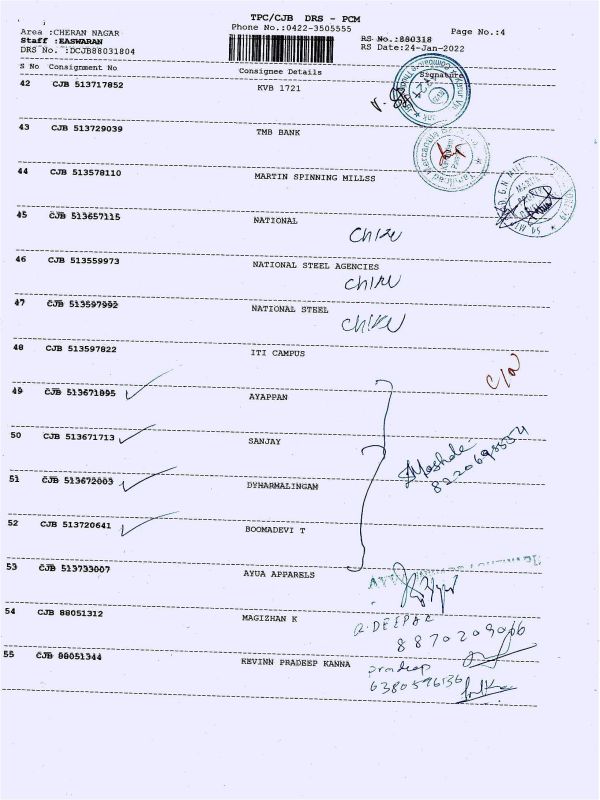 TPC/CJB DRS - PCM
Area :CHERAN NAGAR Phone No.:0422-3505555 Page No.:4
Staff :EASWARAN RS No.:880318
DRS No. :DCJB88031804 RS Date:24-Jan-2022
S No Consignment No Consignee Details Signature
42 CJB 513717852 KVB 1721
43 CJB 513729039 TMB BANK
44 CJB 513578110 MARTIN SPINNING MILLSS
45 CJB 513657115 NATIONAL
46 CJB 513559973 NATIONAL STEEL AGENCIES
47 CJB 513597992 NATIONAL STEEL
48 CJB 513597822 ITI CAMPUS
49 CJB 513671895 AYAPPAN
50 CJB 513671713 SANJAY
51 CJB 513672003 DYHARMALINGAM
52 CJB 513720641 BOOMADEVI T
53 CJB 513733007 AYUA APPARELS
54 CJB 88051312 MAGIZHAN K
R.DEEPAK
55 CJB 88051344 KEVINN PRADEEP KANNA
pradeep